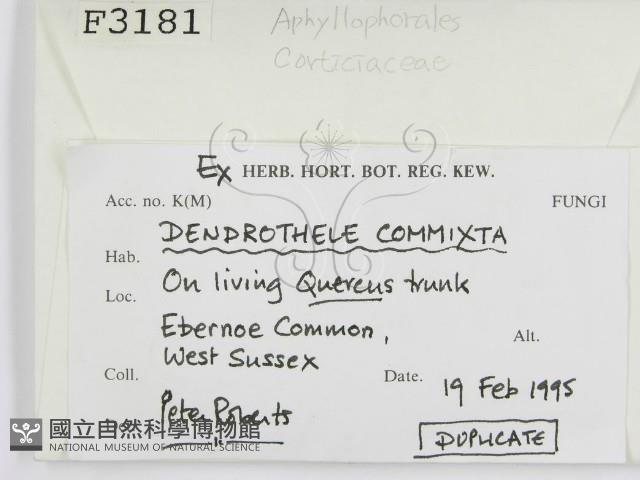 F3181
Aphyllophorales
Corticiaceae
Ex HERB. HORT. BOT. REG. KEW.
Acc. no. K(M) FUNGI
DENDROTHELE COMMIXTA
Hab.
On living Quercus trunk
Loc.
Ebernoe Common, Alt.
West Sussex
Coll. Date. 19 Feb 1995
Peter Roberts
DUPLICATE
國立自然科學博物館
NATIONAL MUSEUM OF NATURAL SCIENCE